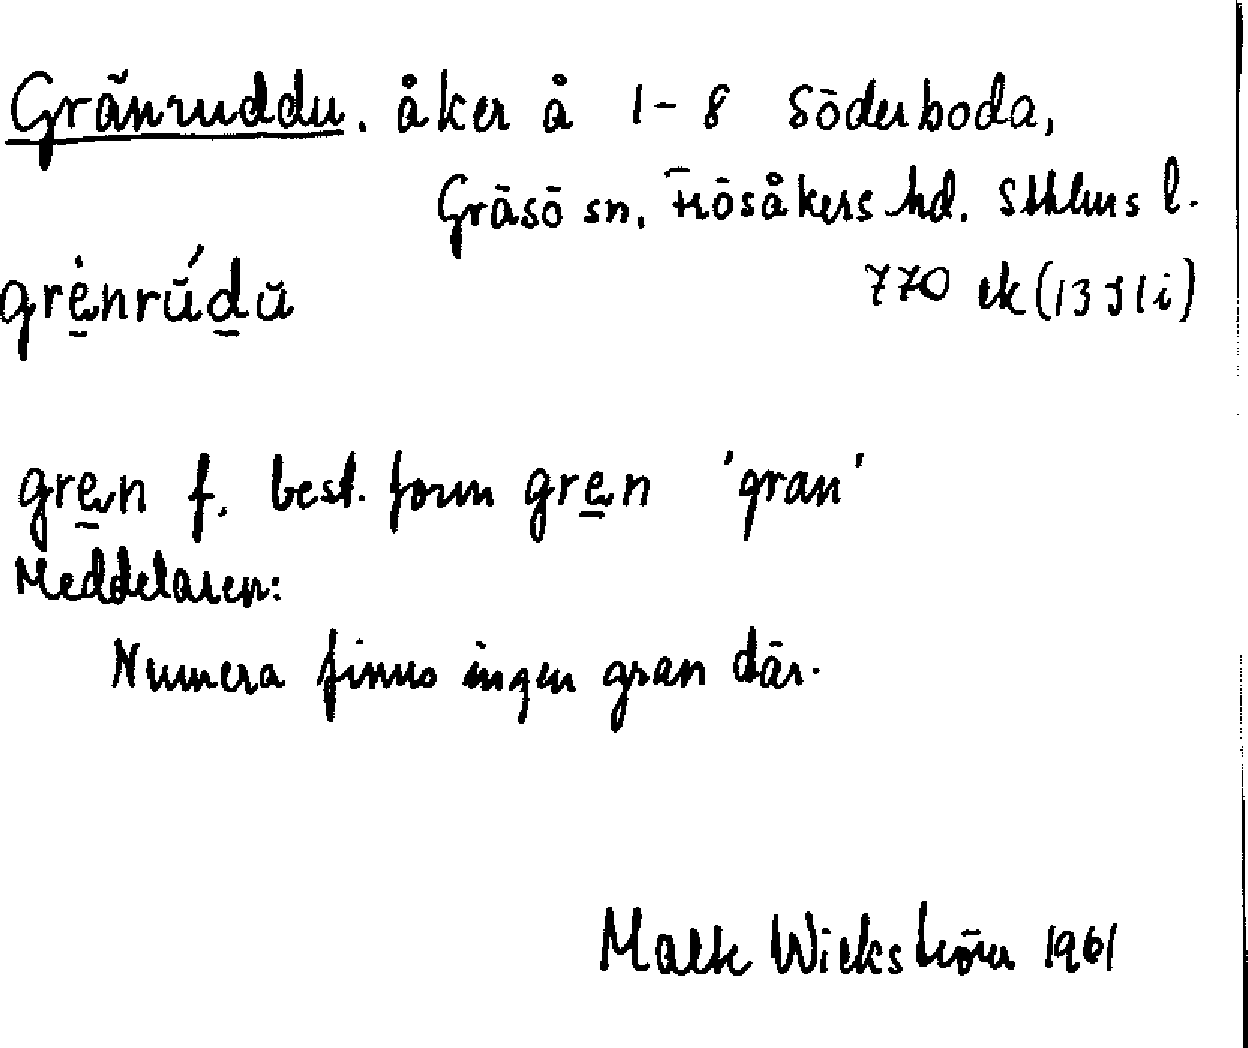 Gränruddu. åker å 1-8 Söderboda,
Gräsö sn. Frösåkers hd. Sthlms l.
grènrúdu 770 ek (13 I 1 i)
gren f. best. form gren 'gran'
Meddelaren:
Numera finns ingen gran där.
Wickström 1961